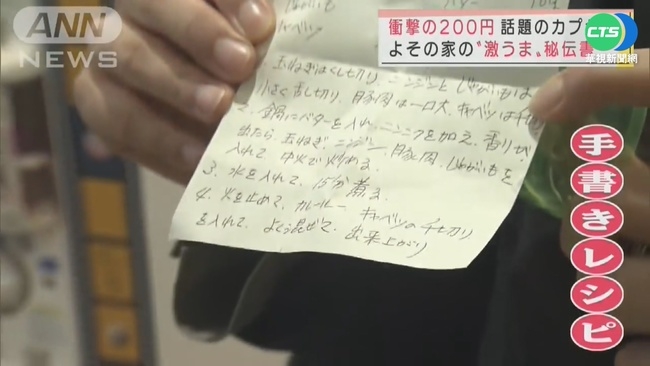 ANN
NEWS
衝撃の200円 話題のカプ
よその家の"激うま"秘伝書
CTS
華視新聞網
じゃがいも
バター 10g
キャベツ
玉ねぎはくし切り、ニンジンとじゃがいもは
小さく乱切り、豚肉は一口大、キャベツは千切り
2. 鍋にバターを入れ、ニンニクを加え、香りが
出たら、玉ねぎ、ニンジン、豚肉、じゃがいもを
入れて 中火で炒める。
3. 水を入れて、15分煮る。
4. 火を止めて、カレールー、キャベツの千切り
を入れて、よく混ぜて、出来上がり
手書きレシピ